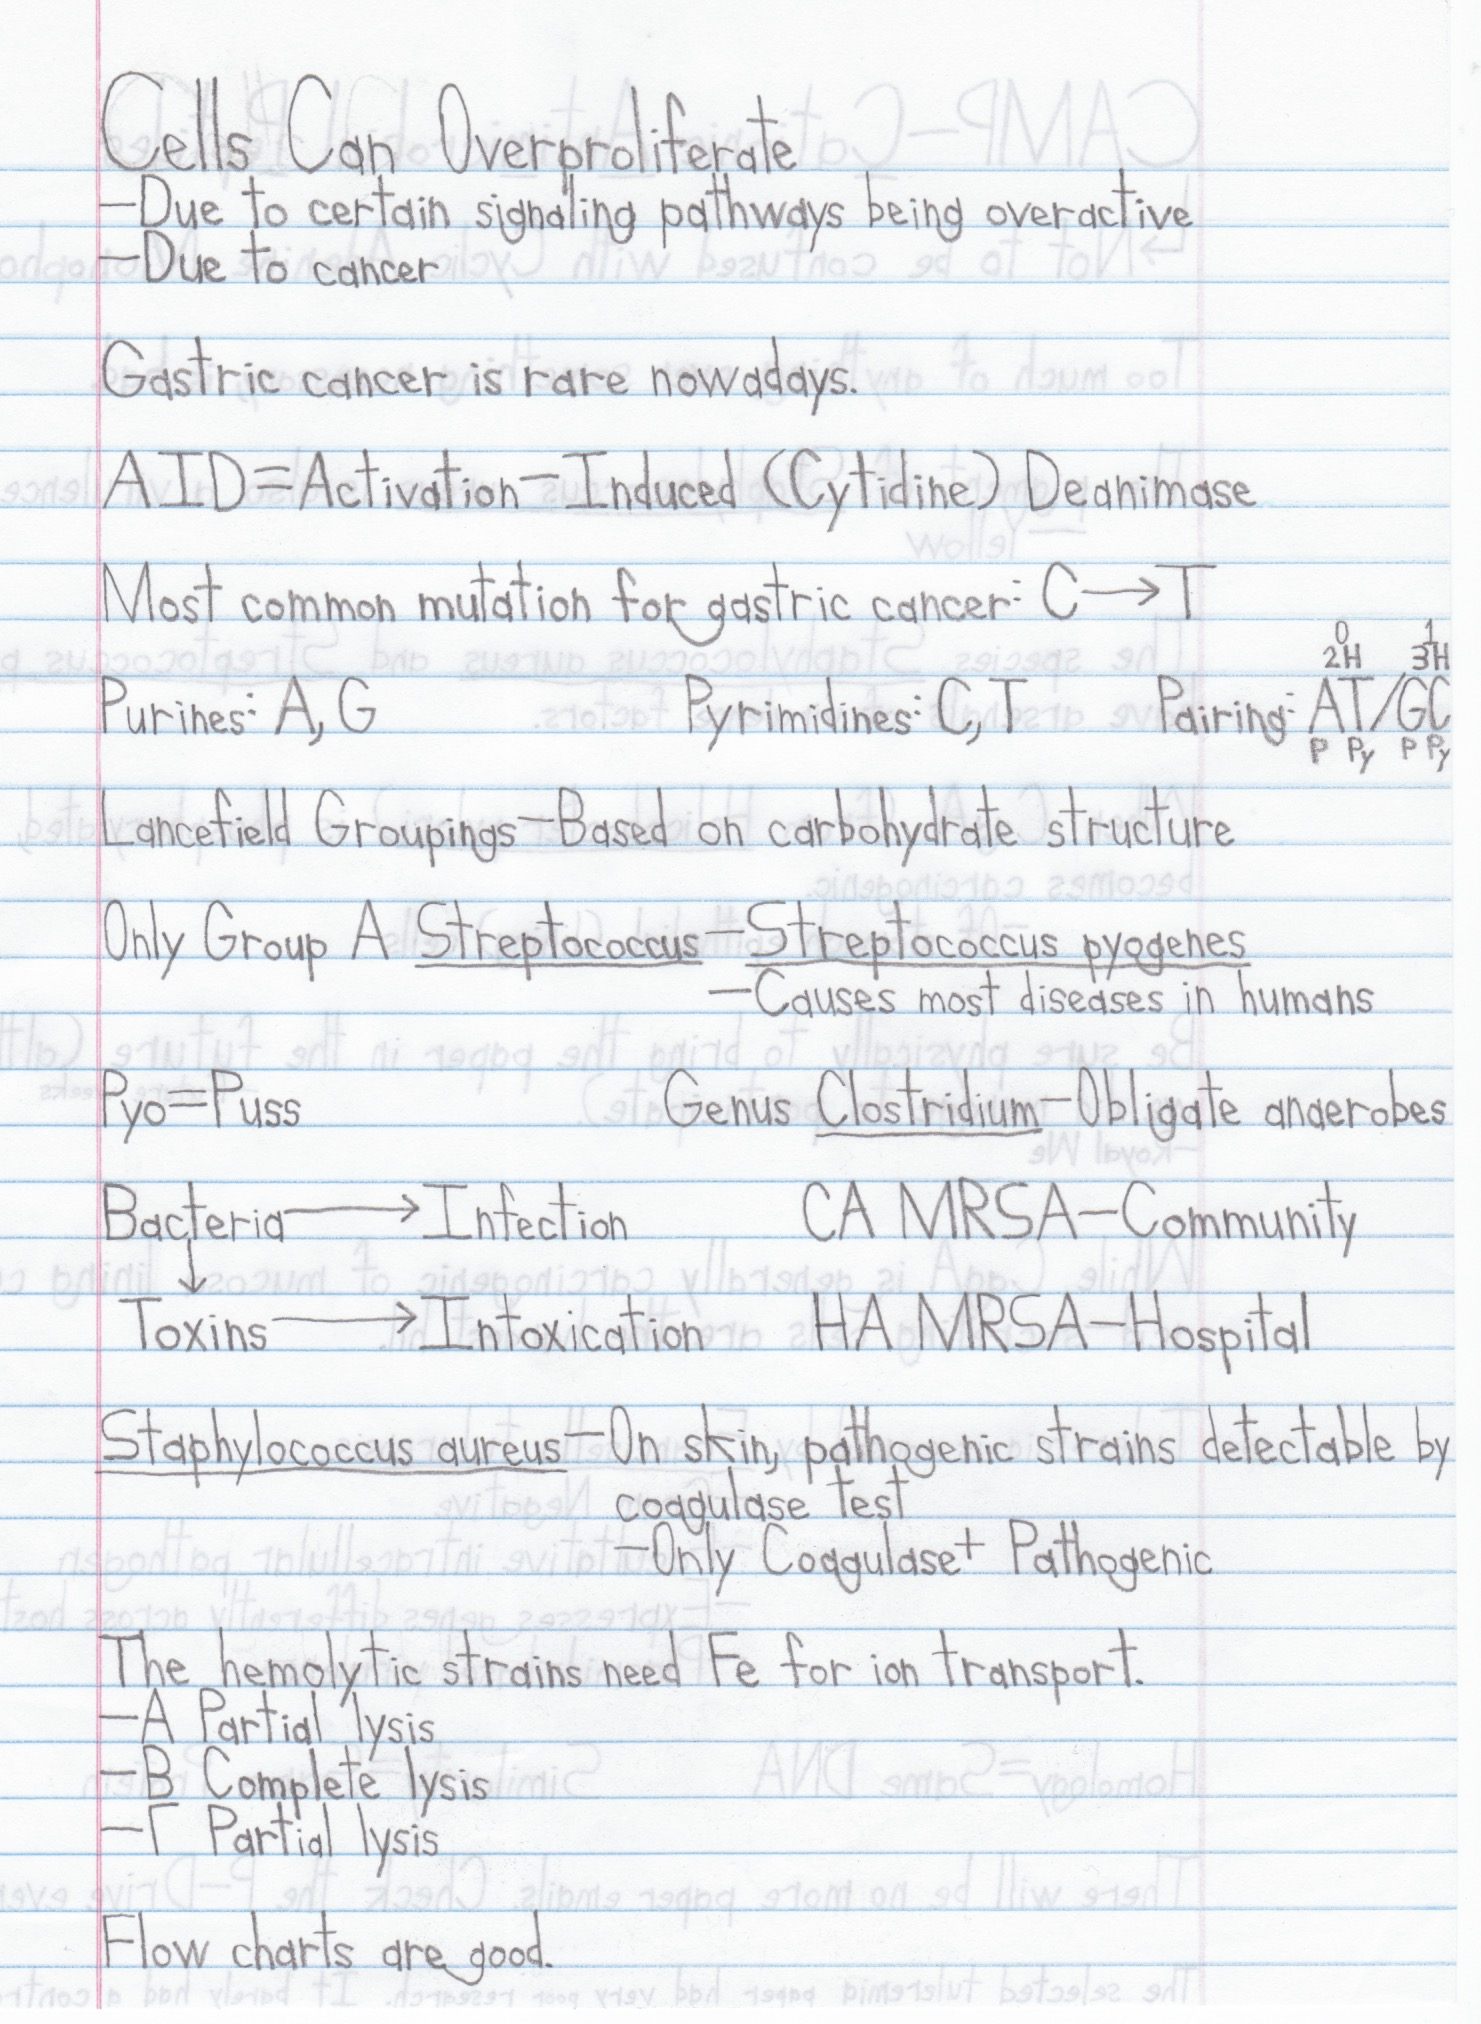 Cells Can Overproliferate
-Due to certain signaling pathways being overactive
-Due to cancer
Gastric cancer is rare nowadays.
AID=Activation-Induced (Cytidine) Deanimase
Most common mutation for gastric cancer: C→T
0 1
2H 3H
Purines: A, G Pyrimidines: C, T Pairing: AT/GC
P Py P Py
Lancefield Groupings-Based on carbohydrate structure
Only Group A Streptococcus-Streptococcus pyogenes
-Causes most diseases in humans
Pyo=Puss Genus Clostridium-Obligate anaerobes
Bacteria→Infection CA MRSA-Community
↓
Toxins→Intoxication HA MRSA-Hospital
Staphylococcus aureus-On skin, pathogenic strains detectable by
coagulase test
-Only Coagulase+ Pathogenic
The hemolytic strains need Fe for ion transport.
-A Partial lysis
-B Complete lysis
-Γ Partial lysis
Flow charts are good.